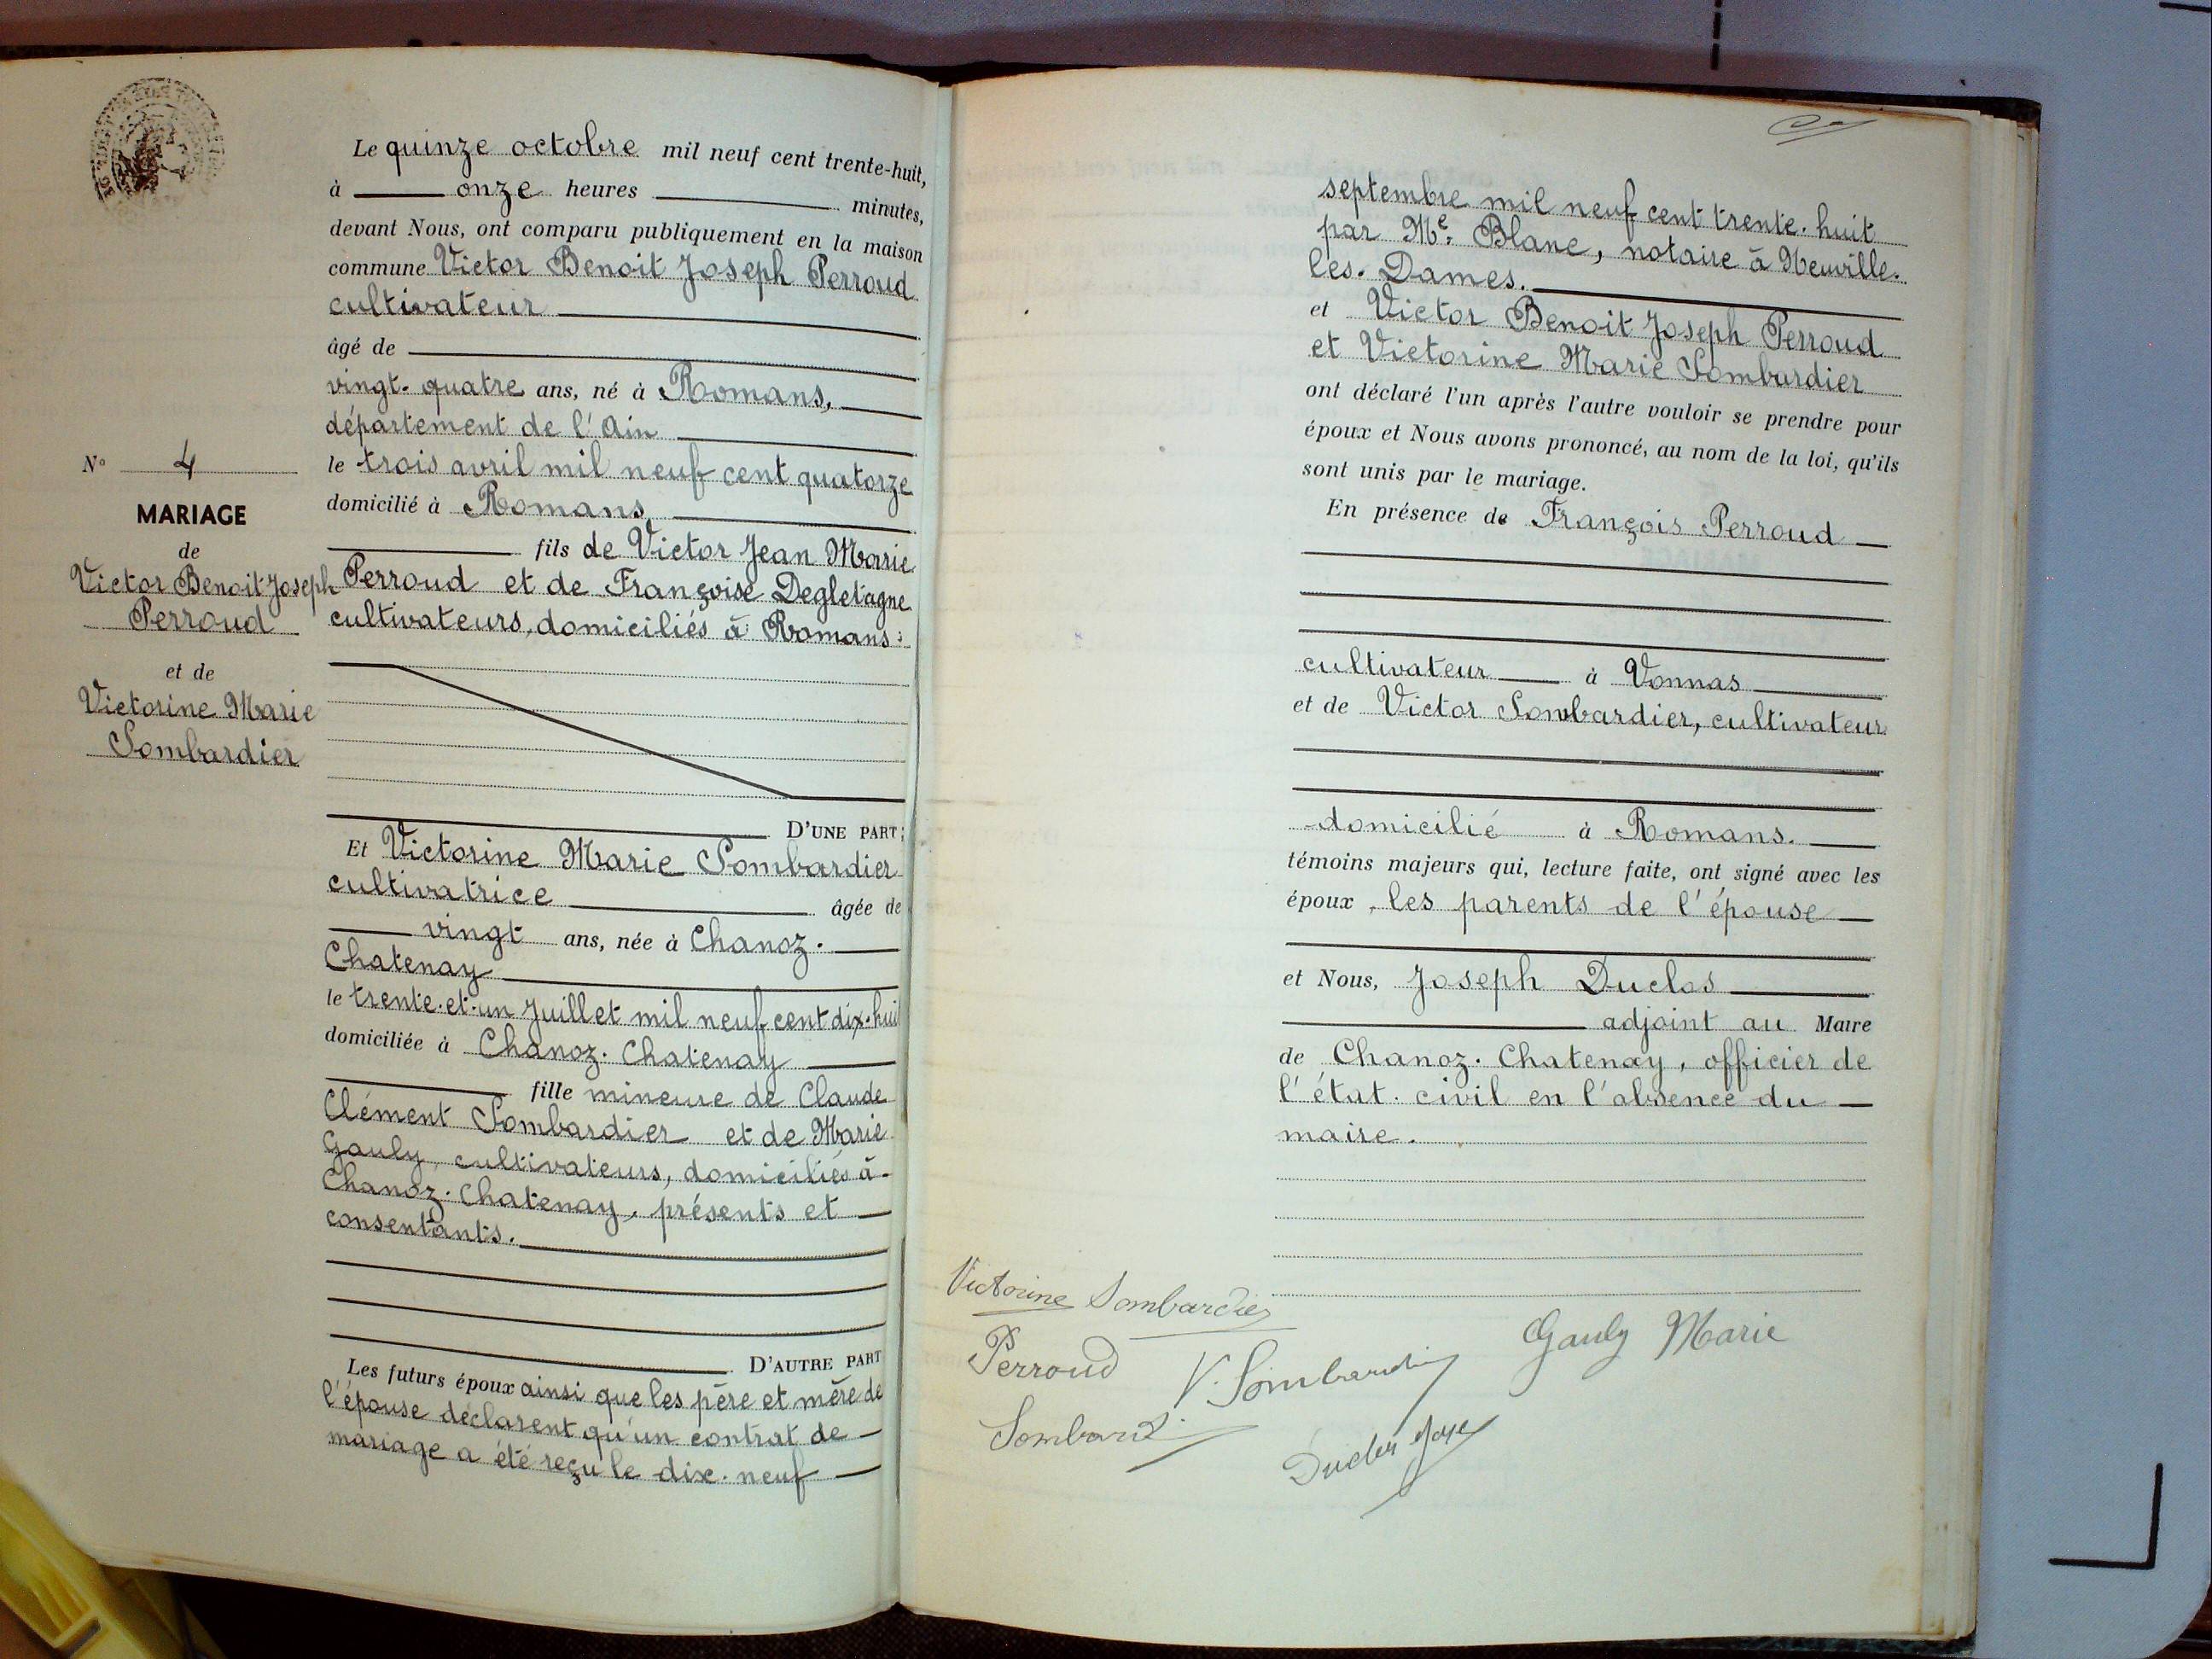 Le quinze octobre mil neuf cent trente-huit,
à onze heures minutes,
devant Nous, ont comparu publiquement en la maison
commune Victor Benoit Joseph Perroud
cultivateur
âgé de
vingt-quatre ans, né à Romans,
département de l'Ain
le trois avril mil neuf cent quatorze
domicilié à Romans
fils de Victor Jean Marie
Perroud et de Françoise Degletagne
cultivateurs, domiciliés à Romans.
D'UNE PART;
Et Victorine Marie Sombardier
cultivatrice âgée de
vingt ans, née à Chanoz-
Chatenay
le trente-et-un Juillet mil neuf cent dix-huit
domiciliée à Chanoz-Chatenay
fille mineure de Claude
Clément Sombardier et de Marie
Gauly, cultivateurs, domiciliés à
Chanoz-Chatenay, présents et
consentants.
D'AUTRE PART
Les futurs époux ainsi que les père et mère de
l'épouse déclarent qu'un contrat de
mariage a été reçu le dix-neuf
N° 4
MARIAGE
de
Victor Benoit Joseph
Perroud
et de
Victorine Marie
Sombardier
septembre mil neuf cent trente-huit
par Me. Blanc, notaire à Neuville-
les-Dames.
et Victor Benoit Joseph Perroud
et Victorine Marie Sombardier
ont déclaré l'un après l'autre vouloir se prendre pour
époux et Nous avons prononcé, au nom de la loi, qu'ils
sont unis par le mariage.
En présence de François Perroud
cultivateur à Vonnas
et de Victor Sombardier, cultivateur
domicilié à Romans.
témoins majeurs qui, lecture faite, ont signé avec les
époux, les parents de l'épouse
et Nous, Joseph Duclos
adjoint au Maire
de Chanoz-Chatenay, officier de
l'état-civil en l'absence du
maire.
Victorine Sombardier
Gauly Marie
Perroud
V. Sombardier